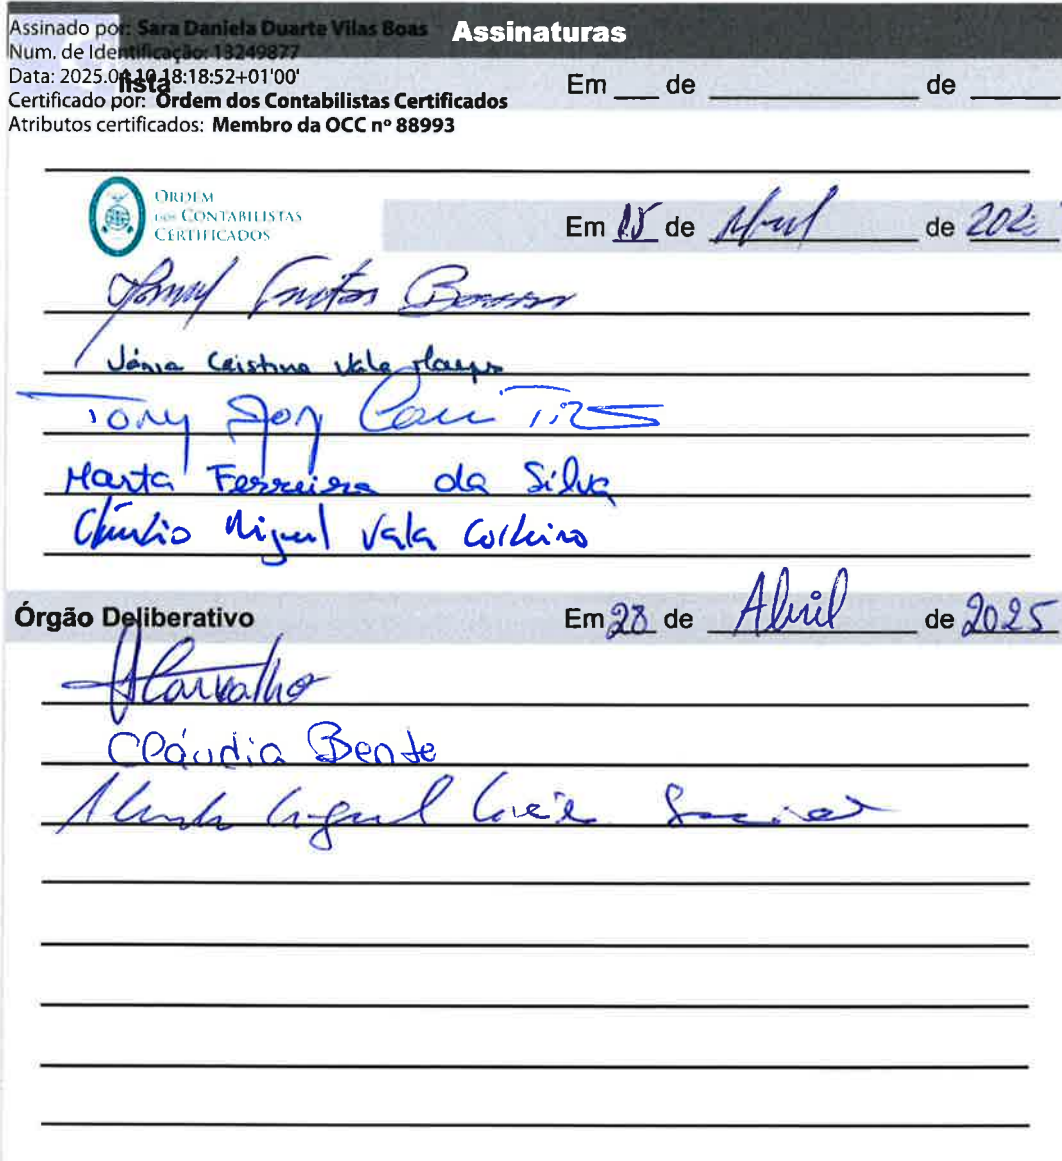 Assinaturas
Assinado por: Sara Daniela Duarte Vilas Boas
Num. de Identificação: 13249877
Data: 2025.04.10 18:18:52+01'00'
lista Em ___ de ___ de ___
Certificado por: Ordem dos Contabilistas Certificados
Atributos certificados: Membro da OCC nº 88993
ORDEM
DOS CONTABILISTAS
CERTIFICADOS
Em 15 de Abril de 202
Vânia Cristina Vala
Tony
Marta Ferreira da Silva
Miguel Vala
Órgão Deliberativo Em 28 de Abril de 2025
Carvalho
Cláudia Bento
Miguel